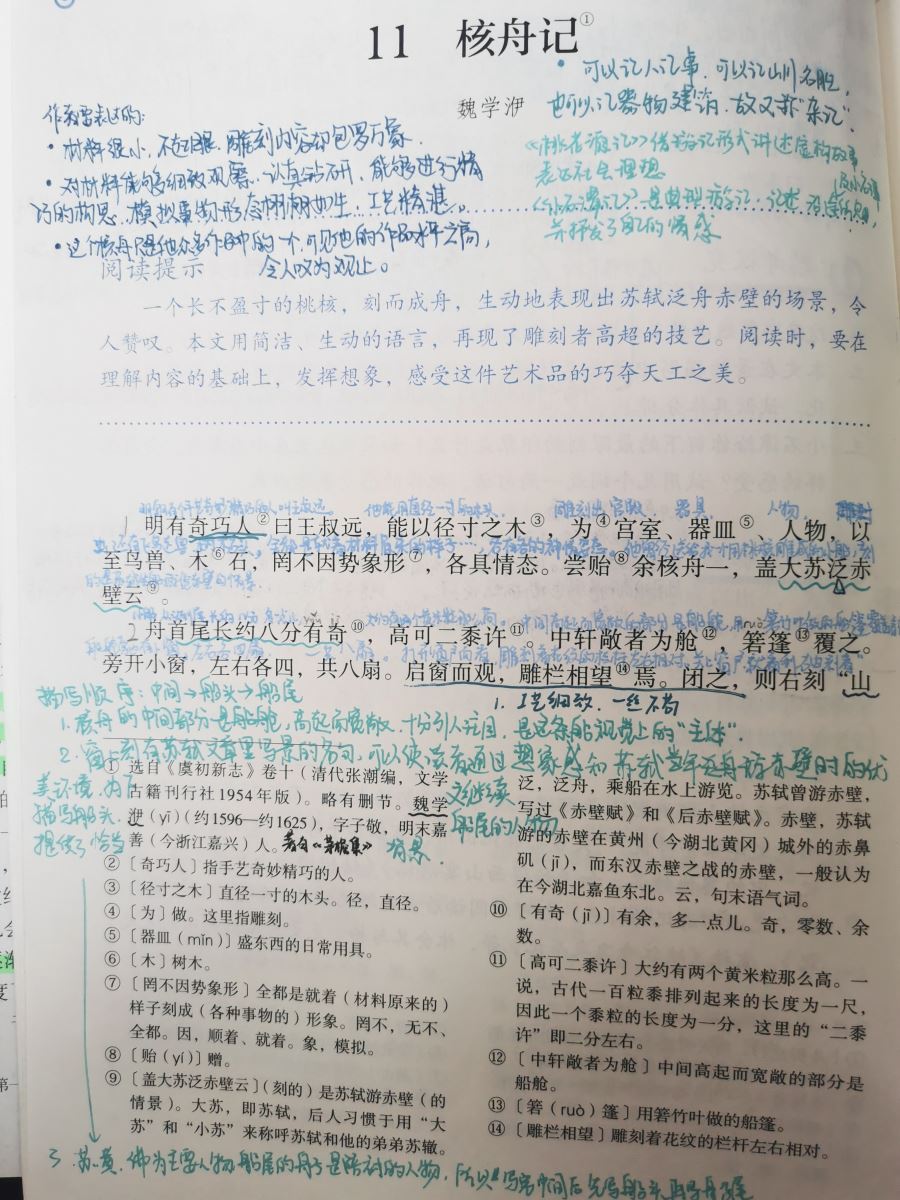 11 核舟记①
魏学洢
• 可以记人记事，可以记山川名胜，
也可以记器物建筑，故又称“杂记”
《桃花源记》借游记形式讲述虚构故事
表达社会理想
《小石潭记》是典型游记，记述
并抒发了自己的情感
• 材料很小，不起眼，雕刻内容却包罗万象
• 对材料能够细致观察、认真钻研，能够进行精
巧的构思，模拟事物形态栩栩如生，工艺精湛。
• 这个核舟只是他众多作品中的一个，可见他的作品水平之高，
令人叹为观止。
阅读提示
一个长不盈寸的桃核，刻而成舟，生动地表现出苏轼泛舟赤壁的场景，令
人赞叹。本文用简洁、生动的语言，再现了雕刻者高超的技艺。阅读时，要在
理解内容的基础上，发挥想象，感受这件艺术品的巧夺天工之美。
雕刻出宫殿 器具 人物
1 明有奇巧人②曰王叔远，能以径寸之木③，为④宫室、器皿⑤、人物，以
至鸟兽、木⑥石，罔不因势象形⑦，各具情态。尝贻⑧余核舟一，盖大苏泛赤
壁云⑨。
2 舟首尾长约八分有奇⑩，高可二黍许⑪。中轩敞者为舱⑫，箬篷⑬覆之。
旁开小窗，左右各四，共八扇。启窗而观，雕栏相望⑭焉。闭之，则右刻“山
描写顺序：中间→船头→船尾
1. 工艺细致，一丝不苟
1. 核舟的中间部分是船舱，高起而宽敞，十分引人注目，是这条船视觉上的“主体”
2. 窗上刻有苏轼文章里写景的名句，可以使读者通过想象感知苏轼当年泛舟游赤壁时的优
美环境，为下文继续
描写船头、船尾的人物
提供了恰当背景．
① 选自《虞初新志》卷十（清代张潮编，文学
古籍刊行社1954年版）。略有删节。魏学
洢（yī）（约1596—约1625），字子敬，明末嘉
善（今浙江嘉兴）人。著有《茅檐集》
②〔奇巧人〕指手艺奇妙精巧的人。
③〔径寸之木〕直径一寸的木头。径，直径。
④〔为〕做。这里指雕刻。
⑤〔器皿（mǐn）〕盛东西的日常用具。
⑥〔木〕树木。
⑦〔罔不因势象形〕全都是就着（材料原来的）
样子刻成（各种事物的）形象。罔不，无不、
全都。因，顺着、就着。象，模拟。
⑧〔贻（yí）〕赠。
⑨〔盖大苏泛赤壁云〕（刻的）是苏轼游赤壁（的
情景）。大苏，即苏轼，后人习惯于用“大
苏”和“小苏”来称呼苏轼和他的弟弟苏辙。
泛，泛舟，乘船在水上游览。苏轼曾游赤壁，
写过《赤壁赋》和《后赤壁赋》。赤壁，苏轼
游的赤壁在黄州（今湖北黄冈）城外的赤鼻
矶（jī），而东汉赤壁之战的赤壁，一般认为
在今湖北嘉鱼东北。云，句末语气词。
⑩〔有奇（jī）〕有余，多一点儿。奇，零数、余
数。
⑪〔高可二黍许〕大约有两个黄米粒那么高。一
说，古代一百粒黍排列起来的长度为一尺，
因此一个黍粒的长度为一分，这里的“二黍
许”即二分左右。
⑫〔中轩敞者为舱〕中间高起而宽敞的部分是
船舱。
⑬〔箬（ruò）篷〕用箬竹叶做的船篷。
⑭〔雕栏相望〕雕刻着花纹的栏杆左右相对。
3. 苏、黄、佛为主要人物，船尾的舟子是陪衬的人物，所以写完中间后先写船头